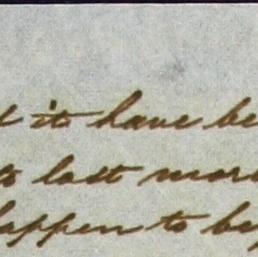 it have be
to last mor
happen to be